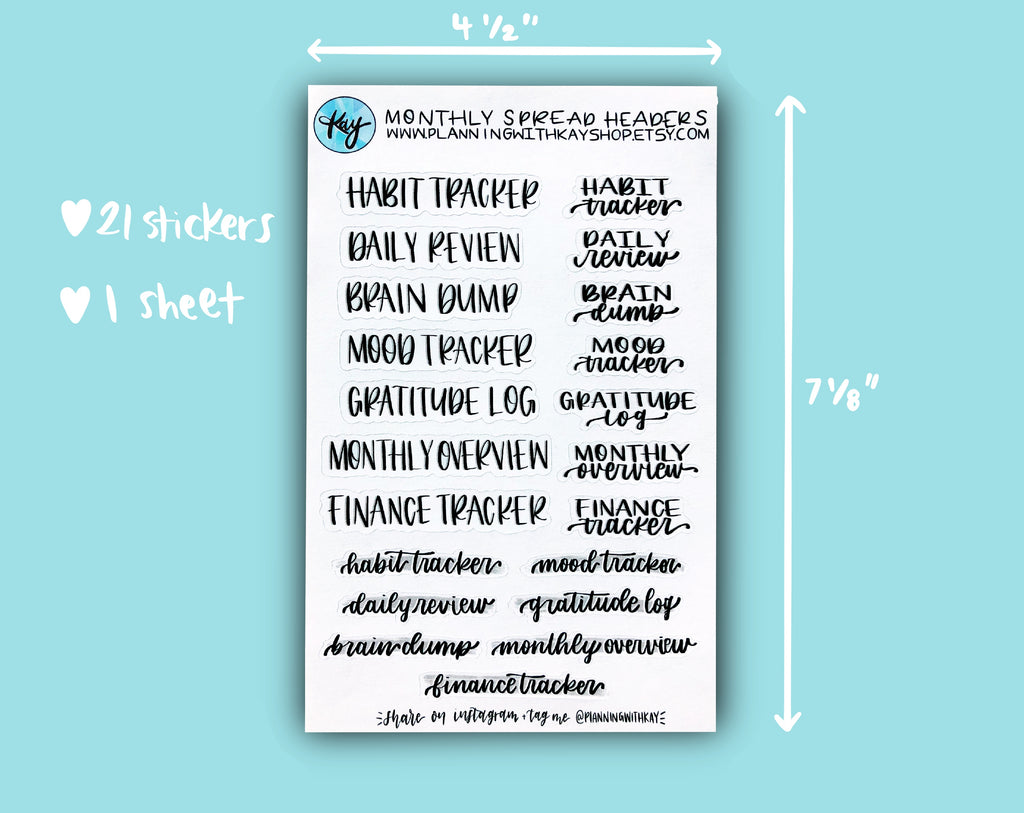 4 ½"
Kay
MONTHLY SPREAD HEADERS
WWW.PLANNINGWITHKAYSHOP.ETSY.COM
21 stickers
1 sheet
7 ⅛"
HABIT TRACKER
HABIT
tracker
DAILY REVIEW
DAILY
review
BRAIN DUMP
BRAIN
dump
MOOD TRACKER
MOOD
tracker
GRATITUDE LOG
GRATITUDE
log
MONTHLY OVERVIEW
MONTHLY
overview
FINANCE TRACKER
FINANCE
tracker
habit tracker
mood tracker
daily review
gratitude log
brain dump
monthly overview
finance tracker
share on instagram + tag me @PLANNINGWITHKAY